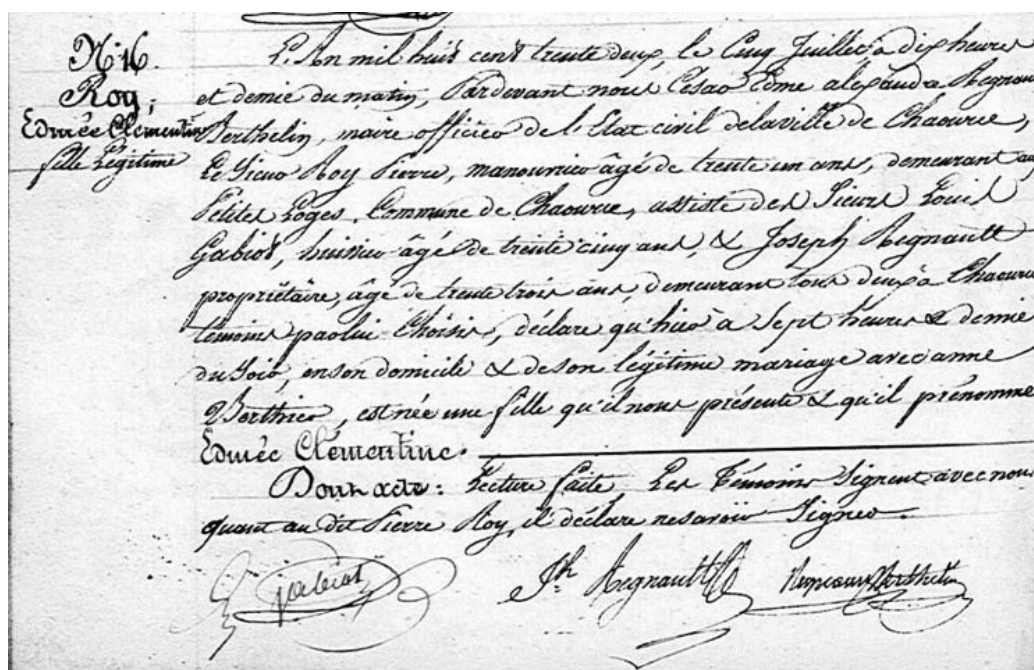 N° 16.
Roy,
Edmée Clémentine
fille Légitime
L'An mil huit cent trente deux, le Cinq Juillet à dix heures
et demie du matin, Pardevant nous César Edme alexandre Regnault
Berthelin, maire officier de l'Etat civil delaville de Chaource,
Le Sieur Roy Pierre, manouvrier âgé de trente un ans, demeurant aux
Petites Loges, Commune de Chaource, assisté des Sieurs Louis
Gabiot, huissier âgé de trente cinq ans, & Joseph Regnault
propriétaire, âgé de trente trois ans, demeurant tous deux à Chaource
témoins par lui choisis, déclare qu'hier à Sept heures & demie
du Soir, en son domicile & de son légitime mariage avec anne
Berthier, est née une fille qu'il nous présente & qu'il prénomme
Edmée Clémentine.
Dont acte: Lecture faite Les Témoins Signent avec nous
quant au dit Pierre Roy, il déclare ne savoir Signer.
Gabiot
Jh Regnault
Berthelin